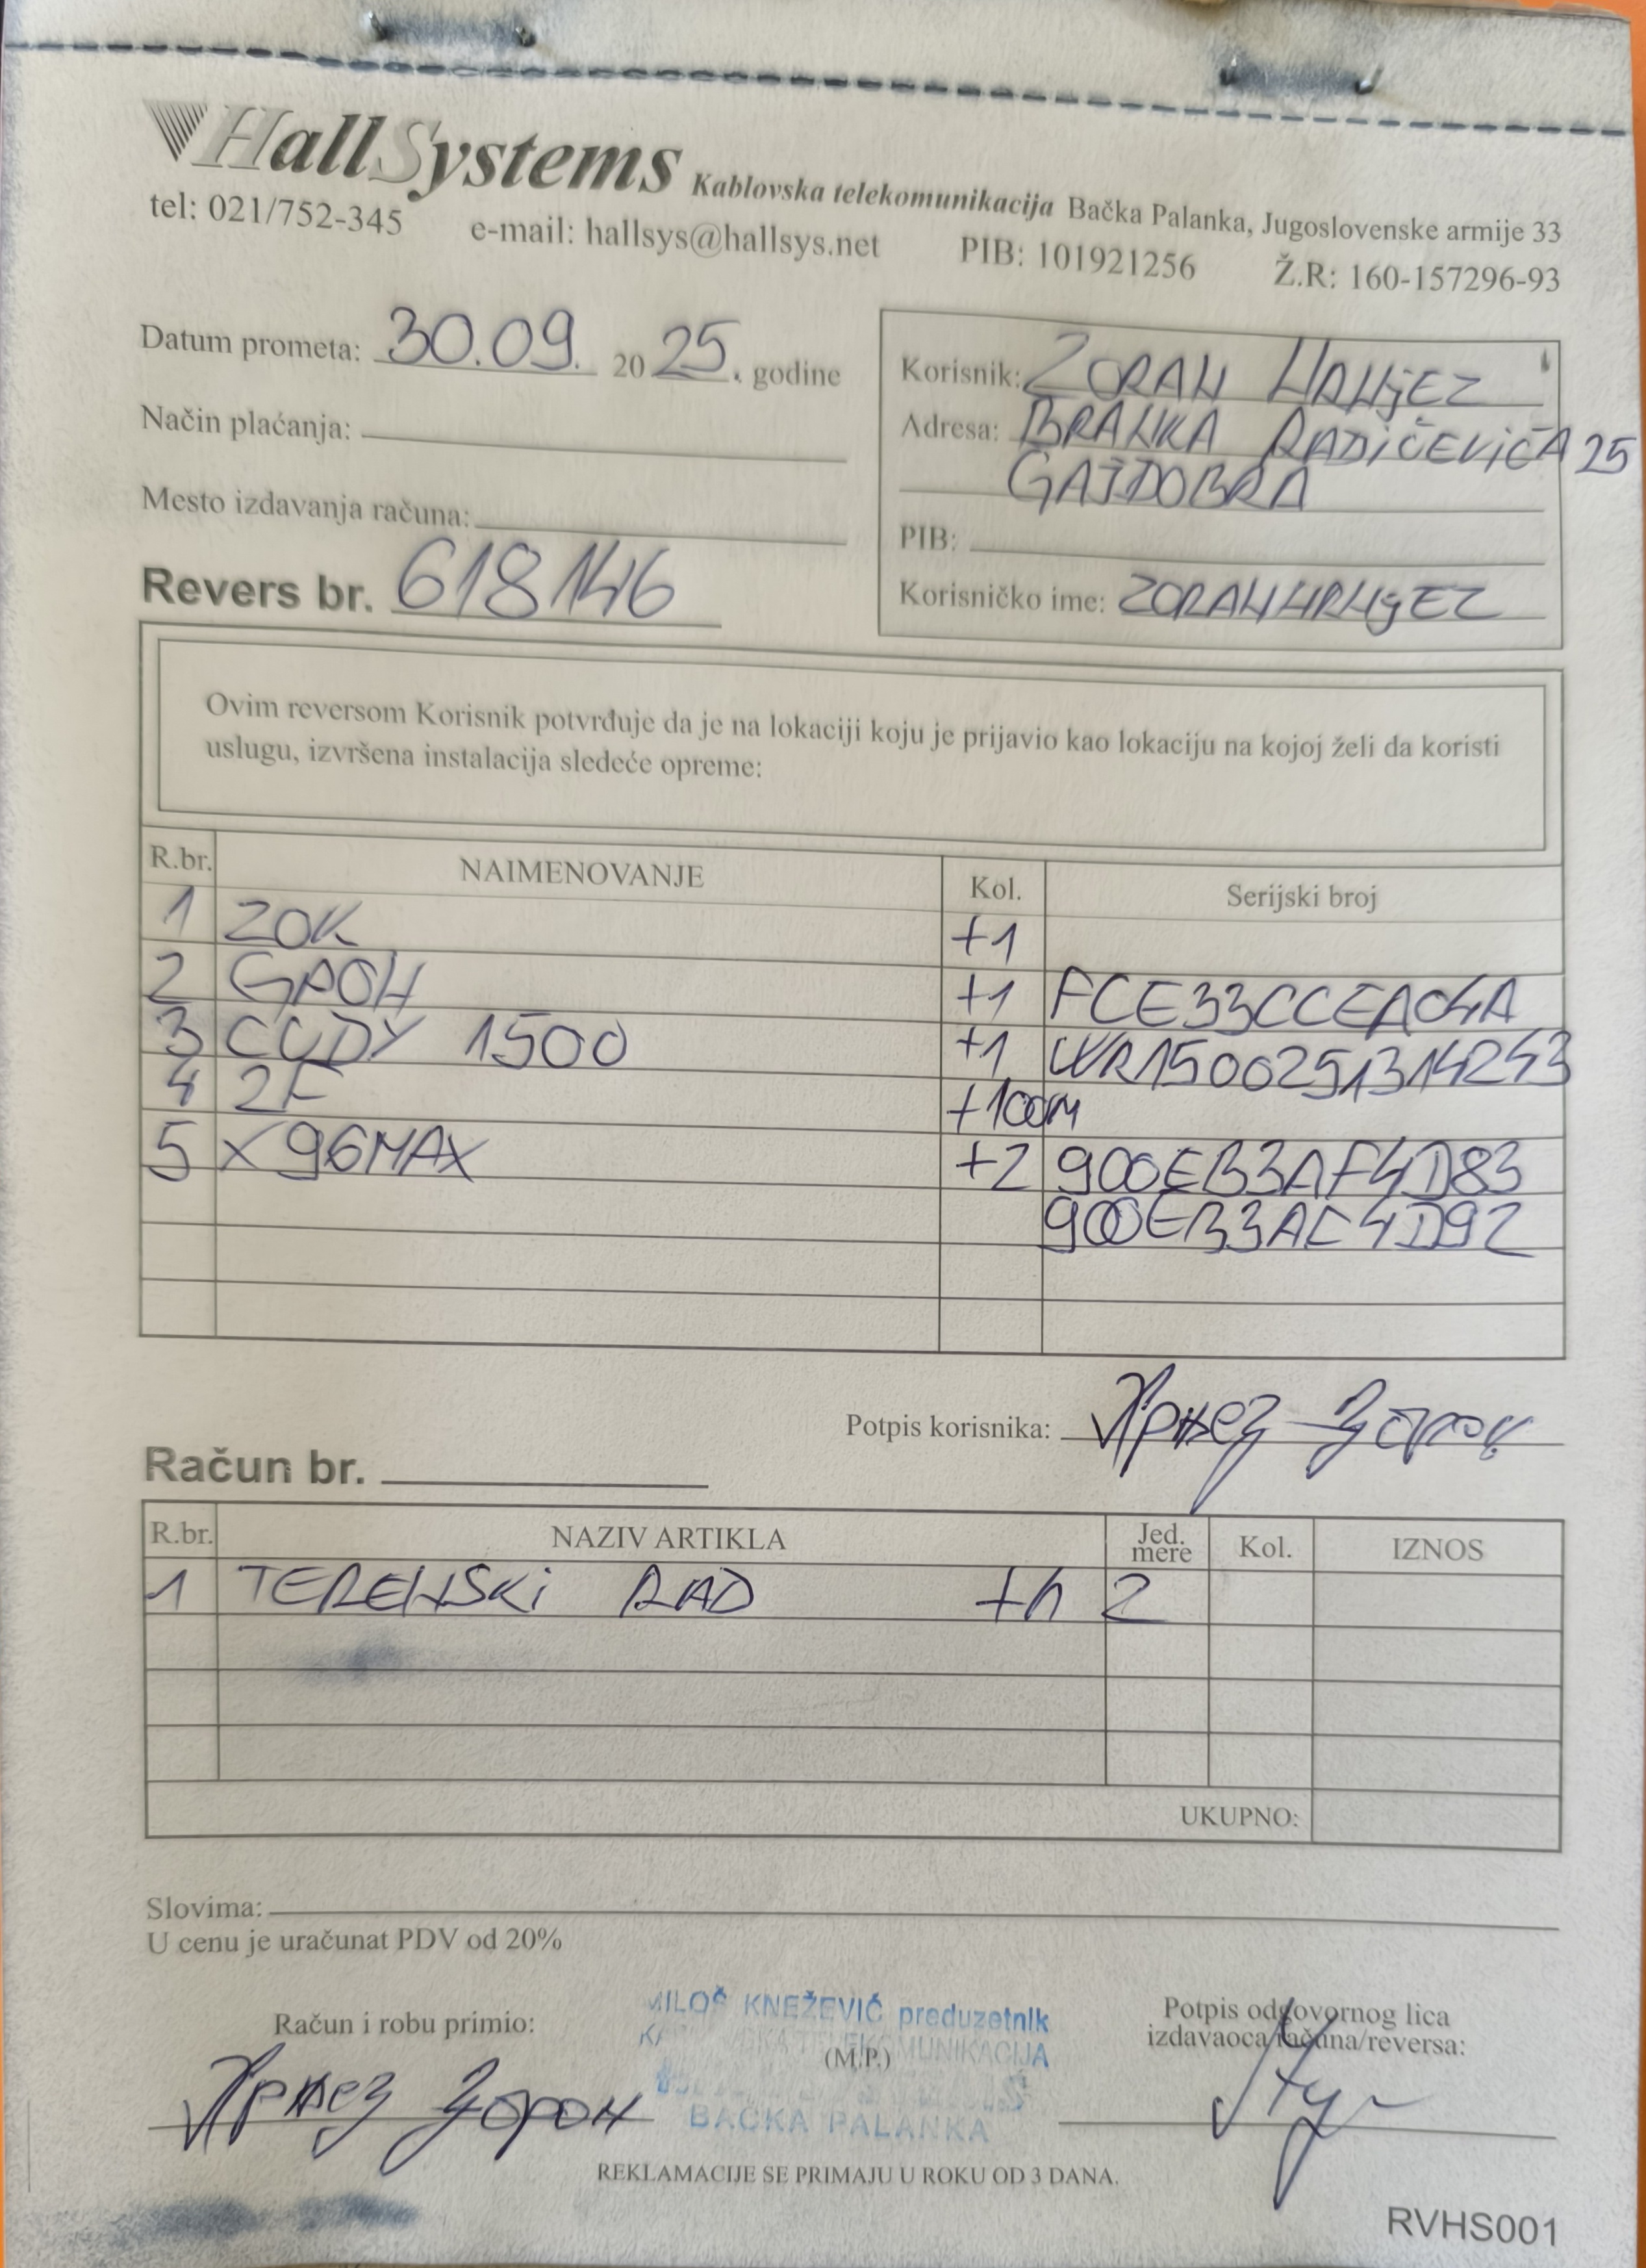 HallSystems Kablovska telekomunikacija Bačka Palanka, Jugoslovenske armije 33
tel: 021/752-345 e-mail: hallsys@hallsys.net PIB: 101921256 Ž.R: 160-157296-93
Datum prometa: 30.09. 2025. godine
Način plaćanja:
Mesto izdavanja računa:
Revers br. 618146
Korisnik: ZORAN HRNJEZ
Adresa: BRANKA RADIČEVIĆA 25
GAJDOBRA
PIB:
Korisničko ime: ZORANHRNJEZ
Ovim reversom Korisnik potvrđuje da je na lokaciji koju je prijavio kao lokaciju na kojoj želi da koristi
uslugu, izvršena instalacija sledeće opreme:
R.br. NAIMENOVANJE Kol. Serijski broj
1 ZOK +1
2 GPON +1 FCE33CCEAC4A
3 CUDY 1500 +1 WR1500251314243
4 2F +100M
5 X96MAX +2 900EB3AF4D83
900EB3AC4D92
Potpis korisnika: Хрњез Зоран
Račun br.
R.br. NAZIV ARTIKLA Jed. mere Kol. IZNOS
1 TERENSKI RAD +h 2
UKUPNO:
Slovima:
U cenu je uračunat PDV od 20%
Račun i robu primio:
Хрњез Зоран
MILOŠ KNEŽEVIĆ preduzetnik
(M.P.)
BAČKA PALANKA
Potpis odgovornog lica
izdavaoca računa/reversa:
REKLAMACIJE SE PRIMAJU U ROKU OD 3 DANA.
RVHS001